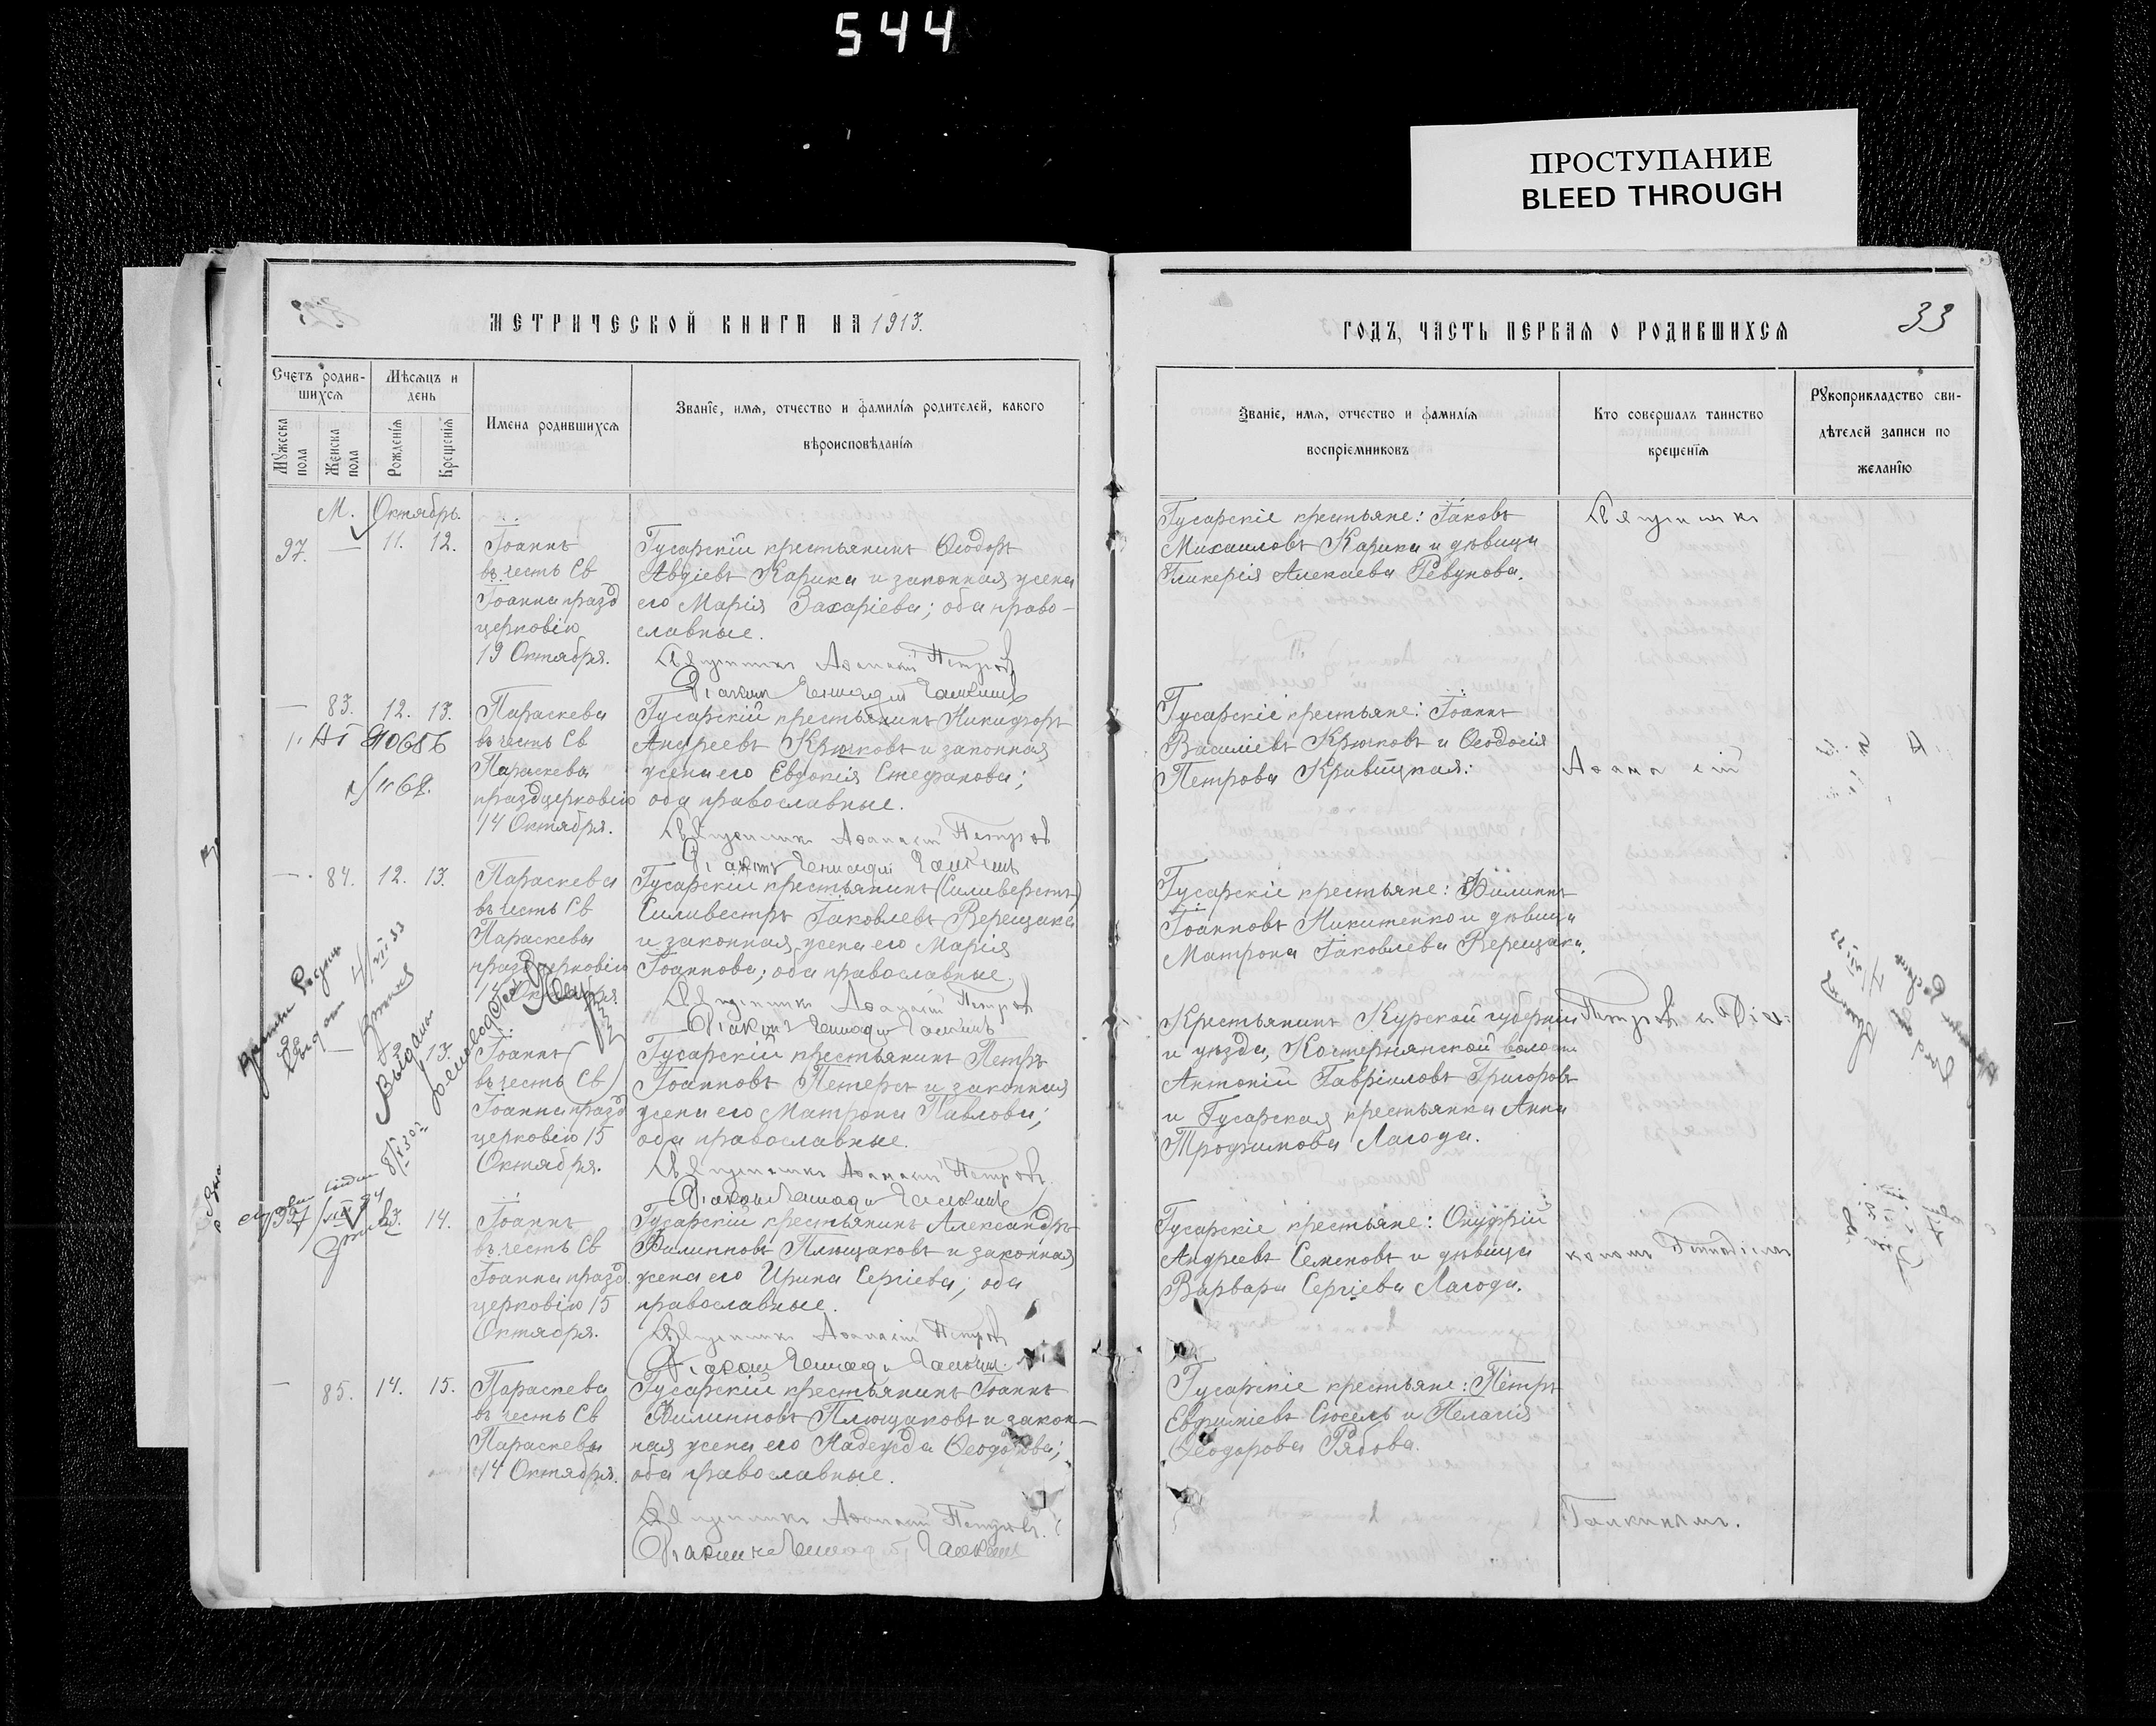 544
ПРОСТУПАНИЕ
BLEED THROUGH
МЕТРИЧЕСКОЙ КНИГИ НА 1913.
Счетъ родив-
шихся
Мѣсяцъ и
день
Мужеска
пола
Женска
пола
Рожденія
Крещенія
Имена родившихся
Званіе, имя, отчество и фамилія родителей, какого
вѣроисповѣданія
М. Октябрь.
97. — 11. 12.
Іоаннъ
въ честь Св
Іоанна празд
церковію
19 Октября.
Гусарскій крестьянинъ Ѳеодоръ
Авдіевъ Карика и законная жена
его Марія Захаріева; оба право-
славные.
Священникъ Аѳанасій Петровъ
Діаконъ Геннадій Галкинъ
— 83. 12. 13.
Параскева
въ честь Св
Параскевы
праздцерковію
14 Октября.
Гусарскій крестьянинъ Никифоръ
Андреевъ Крючковъ и законная
жена его Евдокія Стефанова;
оба православные.
Священникъ Аѳанасій Петровъ
Діаконъ Геннадій Галкинъ
— 84. 12. 13.
Параскева
въ честь Св
Параскевы
празд церковію
14 Октября.
Гусарскій крестьянинъ (Силиверстъ)
Силивестръ Іаковлевъ Верещака
и законная жена его Марія
Іоаннова; оба православные.
Священникъ Аѳанасій Петровъ
Діаконъ Геннадій Галкинъ
— 12. 13.
Іоаннъ
въ честь Св
Іоанна празд
церковію 15
Октября.
Гусарскій крестьянинъ Петръ
Іоанновъ Петерсъ и законная
жена его Матрона Павлова;
оба православные.
Священникъ Аѳанасій Петровъ.
Діаконъ Геннадій Галкинъ
13. 14.
Іоаннъ
въ честь Св
Іоанна празд.
церковію 15
Октября.
Гусарскій крестьянинъ Александръ
Филипповъ Плющаковъ и законная
жена его Ирина Сергіева; оба
православные.
Священникъ Аѳанасій Петровъ
Діаконъ Геннадій Галкинъ.
— 85. 14. 15.
Параскева
въ честь Св
Параскевы
14 Октября.
Гусарскій крестьянинъ Іоаннъ
Филипповъ Плющаковъ и закон-
ная жена его Надежда Ѳеодорова;
оба православные.
Священникъ Аѳанасій Петровъ.
Діаконъ Геннадій Галкинъ
ГОДЪ, ЧАСТЬ ПЕРВАЯ О РОДИВШИХСЯ
33
Званіе, имя, отчество и фамилія
воспріемниковъ
Кто совершалъ таинство
крещенія
Рукоприкладство сви-
дѣтелей записи по
желанію
Гусарскіе крестьяне: Іаковъ
Михаиловъ Карика и дѣвица
Гликерія Алексѣева Ревунова.
Священникъ
Гусарскіе крестьяне: Іоаннъ
Василіевъ Крючковъ и Ѳеодосія
Петрова Кравицкая.
Аѳанасій
Гусарскіе крестьяне: Филиппъ
Іоанновъ Никитенко и дѣвица
Матрона Іаковлева Верещака.
Крестьянинъ Курской губерніи
и уѣзда, волости
Антоній Гавріиловъ Григоровъ
и Гусарская крестьянка Анна
Трофимова Лагода.
Петровъ и Діа-
Гусарскіе крестьяне: Онуфрій
Андреевъ Семеновъ и дѣвица
Варвара Сергіева Лагода.
кономъ Геннадіемъ
Гусарскіе крестьяне: Петръ
Евфиміевъ и Пелагія
Ѳеодорова Рябова.
Галкинымъ.